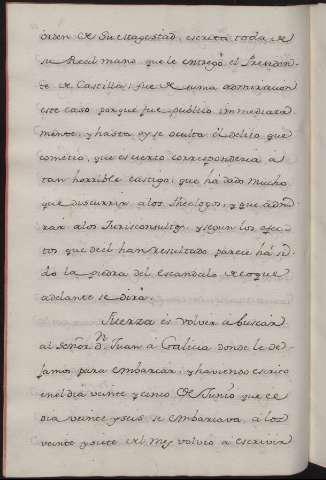 orden de Su Magestad, escrita toda de
su Real mano que le entregó el Presiden-
te de Castilla; fue de suma admiracion
este caso porque fue publico immediata-
mente, y hasta oy se oculta el delito que
cometio, que es cierto corresponderia a
tan horrible castigo; que há dado mucho
que discurrir a los Theologos, y que admi-
rar a los Jurisconsultos, y segun los efec-
tos que de el han resultado parece há si-
do la piedra del escandalo de lo que
adelante se dirá.
Fuerza es volvir à buscar
al Señor Dn. Juan à Galicia donde le de-
jamos para embarcar; y haviendo escrito
en el dia veinte y cinco de Junio que el
dia veinte y seis se embarcava, á los
veinte y siete del mes volvió a escrivir